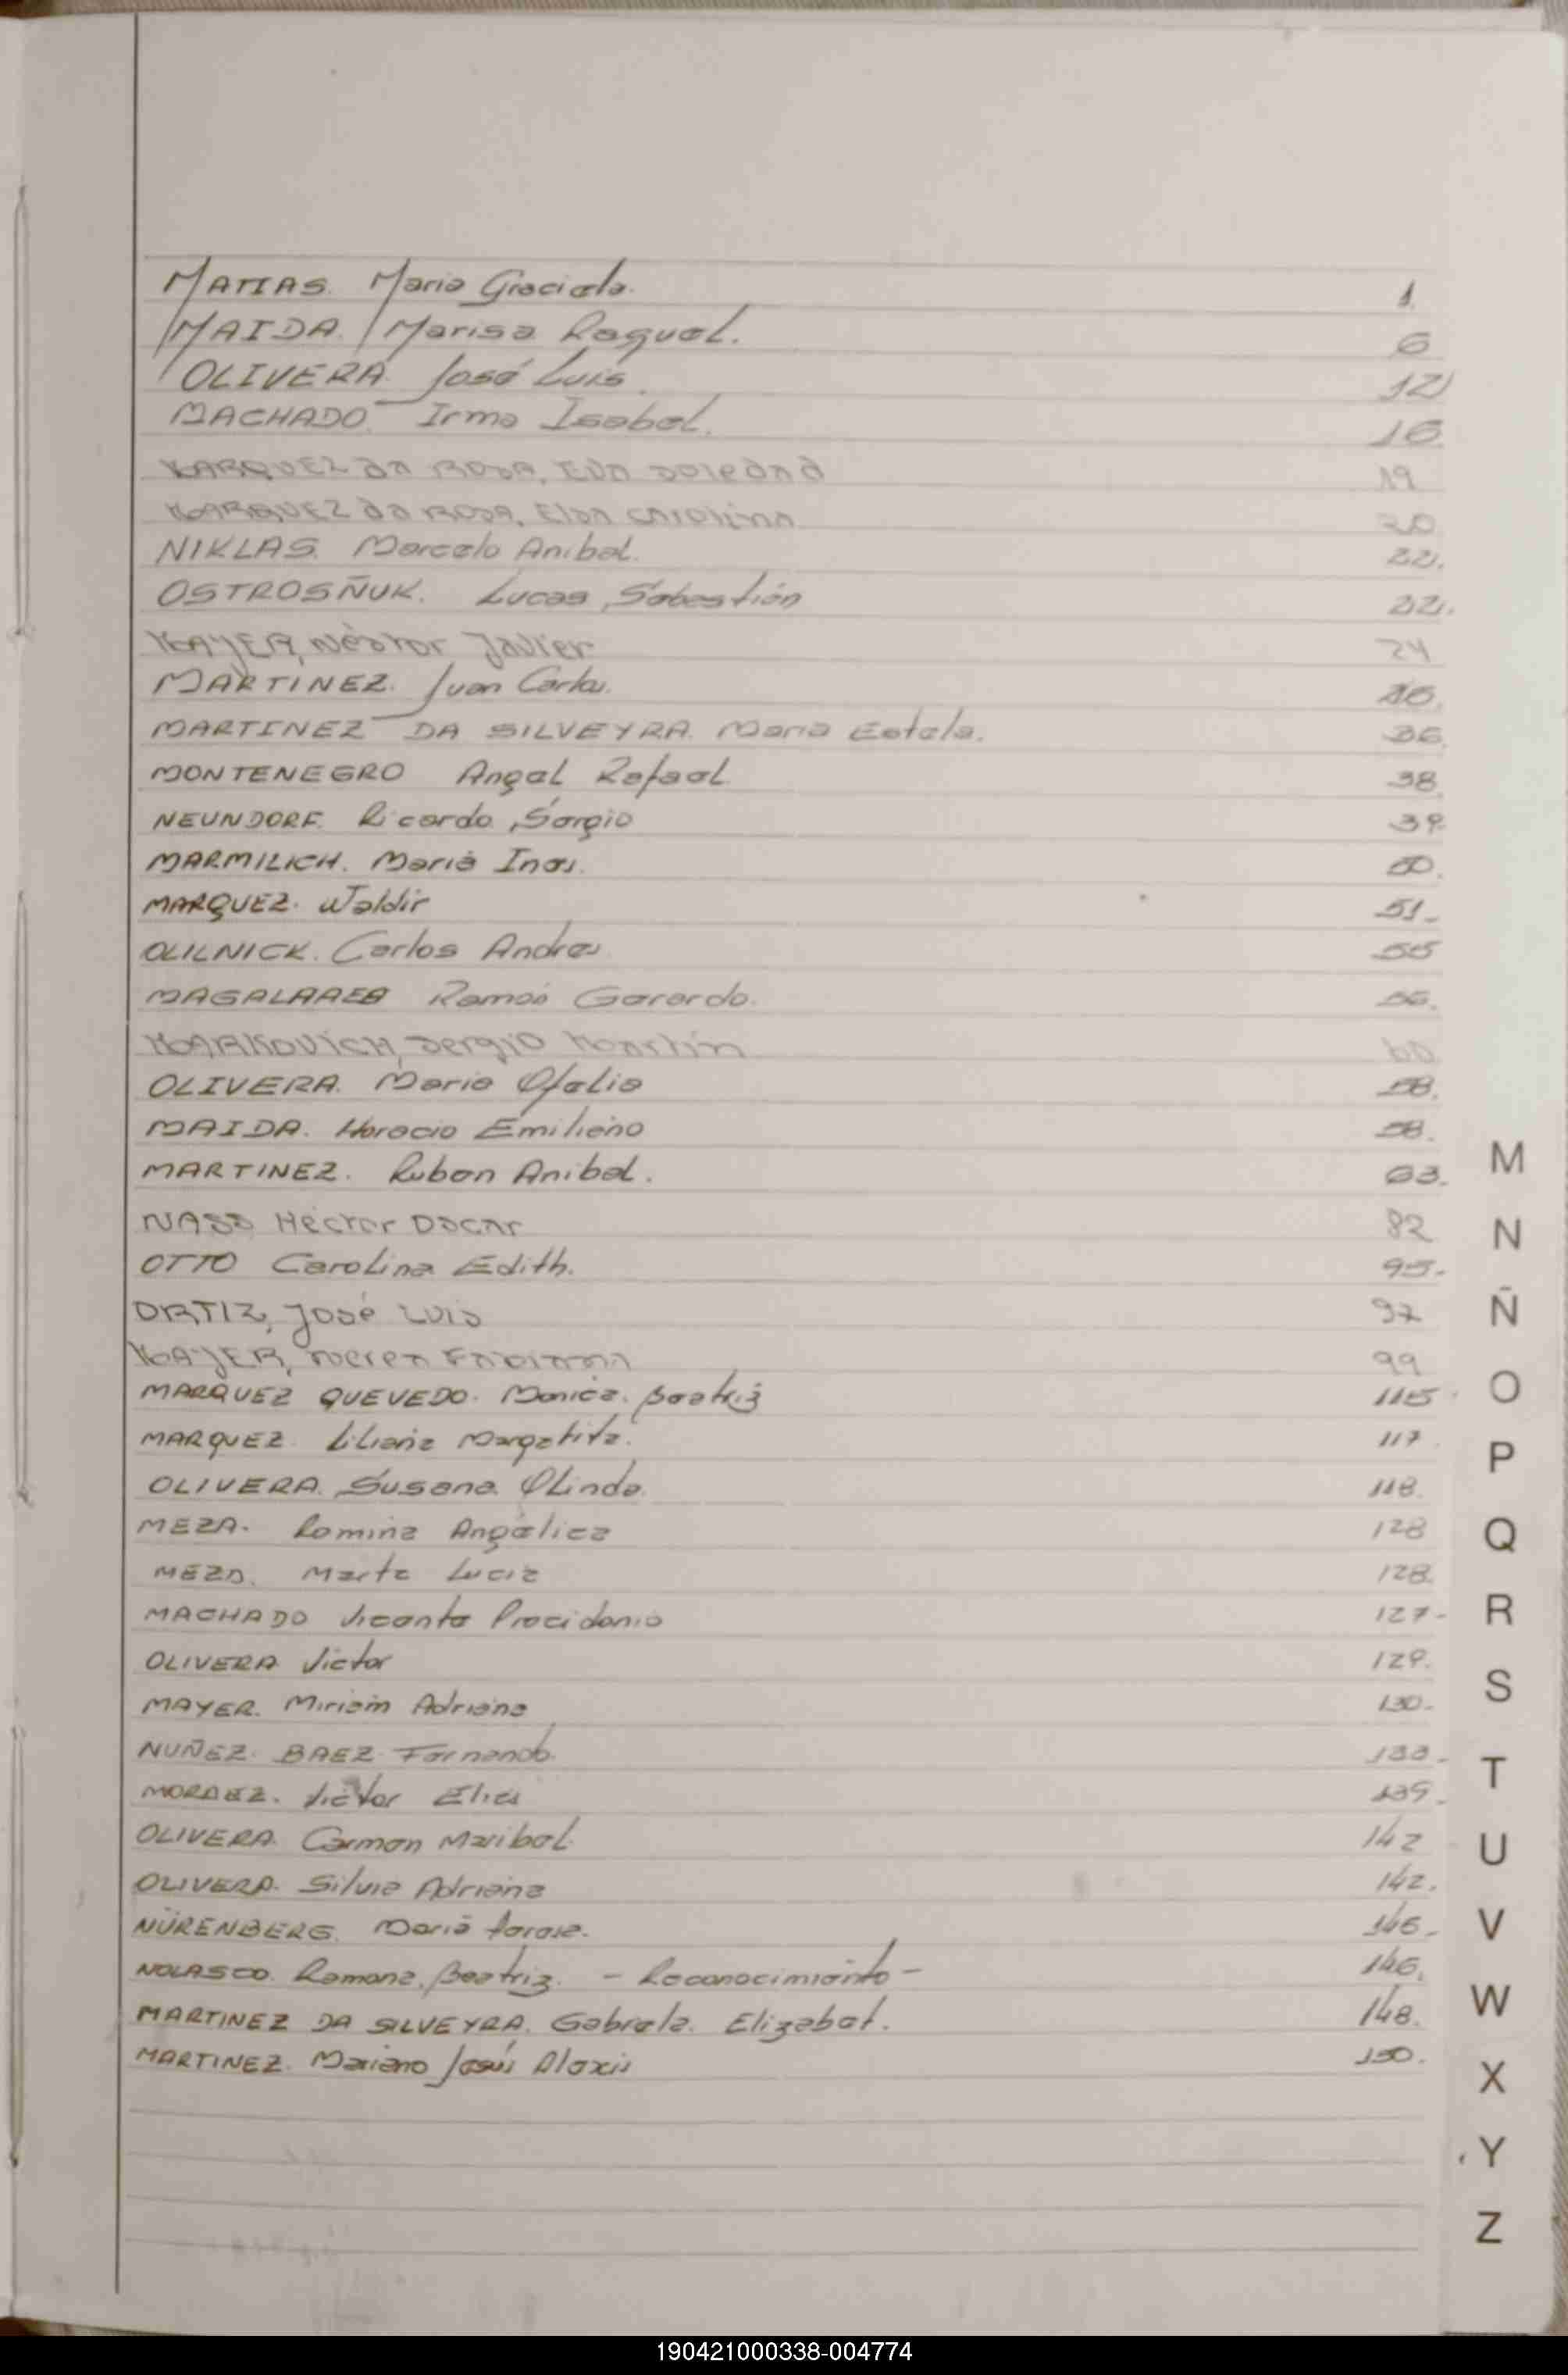 MATIAS. Maria Graciela. 1.
MAIDA. Marisa Raquel. 6
OLIVERA José Luis. 12
MACHADO. Irma Isabel. 16.
MARQUEZ da ROSA, Eva Soledad 19
MARQUEZ da ROSA, Elsa Carolina 20
NIKLAS. Marcelo Anibal. 22.
OSTROSÑUK. Lucas Sebastián 22.
MAYER, Néstor Javier 24
MARTINEZ. Juan Carlos.
MARTINEZ DA SILVEYRA. Maria Estela. 36.
MONTENEGRO Angel Rafael 38.
NEUNDORF. Ricardo Sergio 39.
MARMILICH. Maria Ines. 50.
MARQUEZ. Waldir 51-
OLILNICK. Carlos Andres 55
Ramón Gerardo. 56.
MARKOVICH, Sergio Martín 60
OLIVERA. Maria Ofelia 58.
MAIDA. Horacio Emiliano 58.
MARTINEZ. Ruben Anibal. 63.
NASS Héctor Oscar 82
OTTO Carolina Edith. 95-
ORTIZ, José Luis 97
MAYER, Nerea Fabiana 99
MARQUEZ QUEVEDO. Monica. Beatriz 115.
MARQUEZ. Liliana Margarita. 117.
OLIVERA. Susana Olinda. 118.
MEZA. Romina Angélica 128
MEZA. Marta Lucia 128.
MACHADO Vicente Procidonio 127-
OLIVERA Victor 129.
MAYER. Miriam Adriana 130-
NUÑEZ. BAEZ. Fernando. 133-
Victor Elias 139.
OLIVERA. Carmen Maribel. 142
OLIVERA. Silvia Adriana 142.
NÜRENBERG. Maria Teresa. 146-
NOLASCO. Ramona. Beatriz. - Reconocimiento - 146.
MARTINEZ DA SILVEYRA. Gabriela. Elizabet. 148.
MARTINEZ. Mariano Jesús Alexis 150.
M
N
Ñ
O
P
Q
R
S
T
U
V
W
X
Y
Z
190421000338-004774